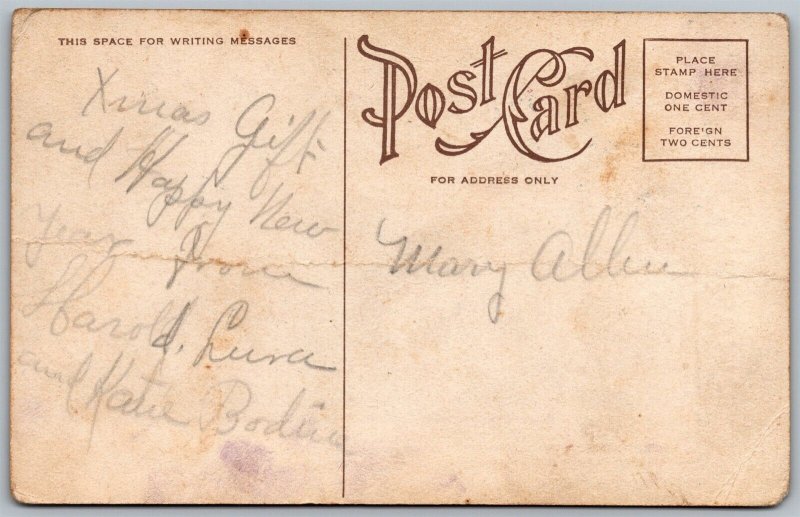 THIS SPACE FOR WRITING MESSAGES
Xmas Gift
and Happy New
Year From
Harold, Lura
and Katie
Post Card
FOR ADDRESS ONLY
Mary Allen
PLACE
STAMP HERE
DOMESTIC
ONE CENT
FOREIGN
TWO CENTS